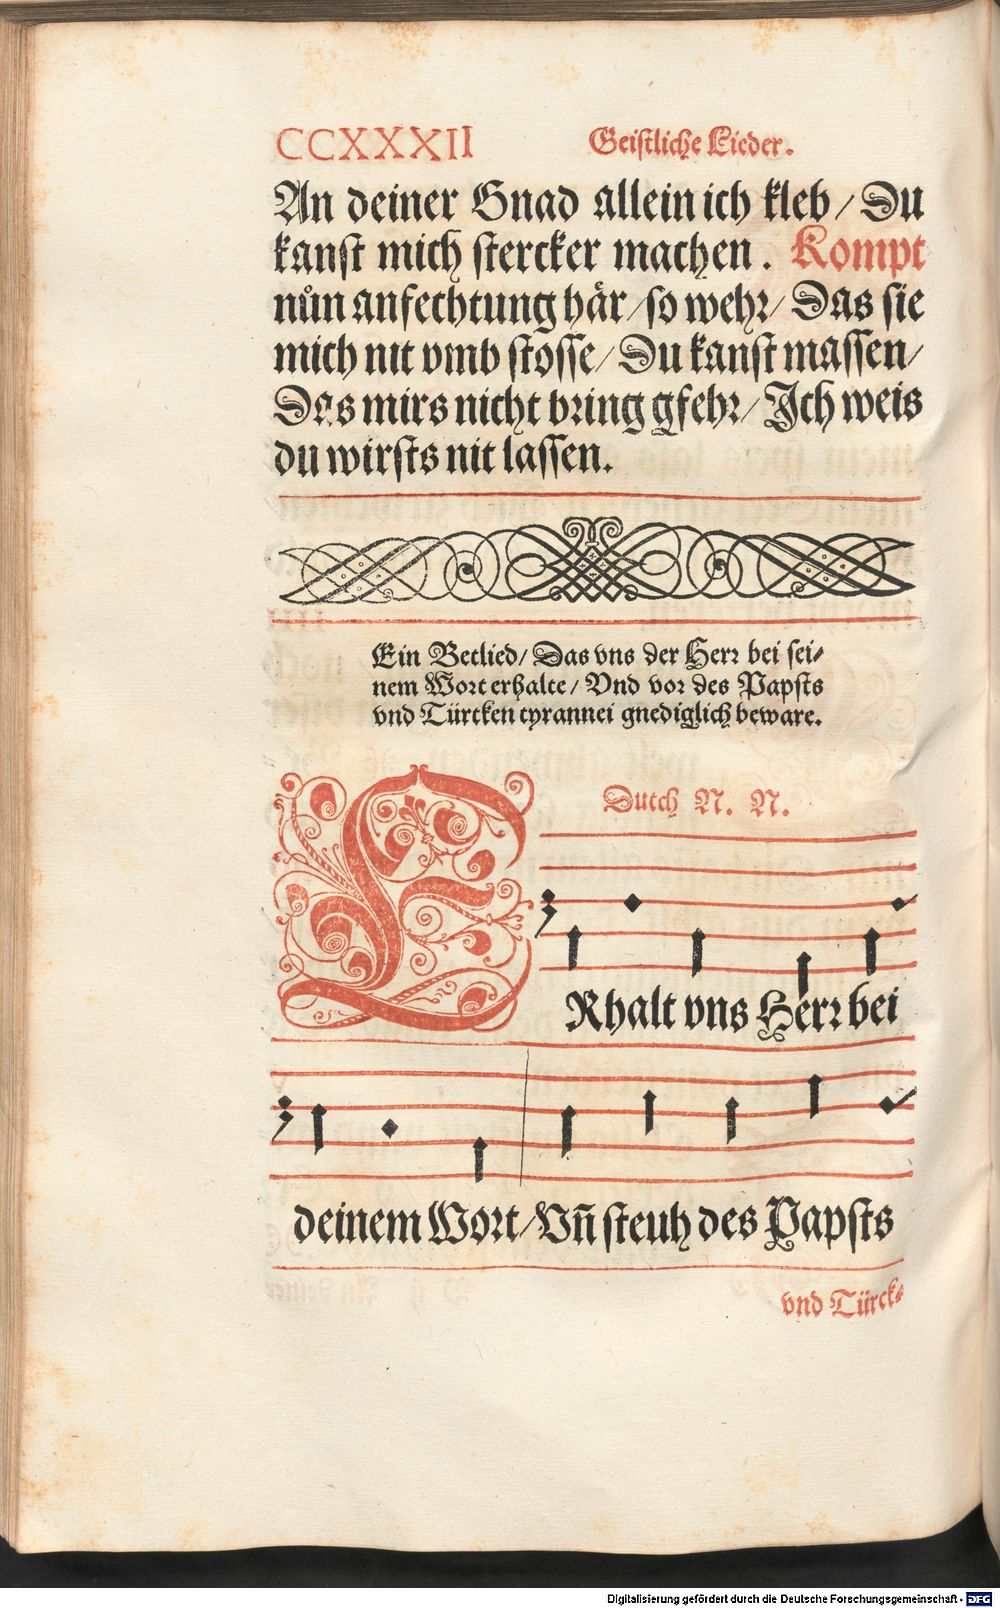 CCXXXII Geistliche Lieder.
An deiner Gnad allein ich kleb / Du
kanst mich stercker machen. Kompt
nůn anfechtung här / so wehr / Das sie
mich nit vmb stosse / Du kanst massen /
Das mirs nicht bring gfehr / Ich weis
du wirsts nit lassen.
Ein Betlied / Das vns der Herr bei sei-
nem Wort erhalte / Vnd vor des Papsts
vnd Türcken tyrannei gnediglich beware.
Durch N. N.
ERhalt vns Herr bei
deinem Wort / Vn̄ steuh des Papsts
vnd Türck-
Digitalisierung gefördert durch die Deutsche Forschungsgemeinschaft - DFG